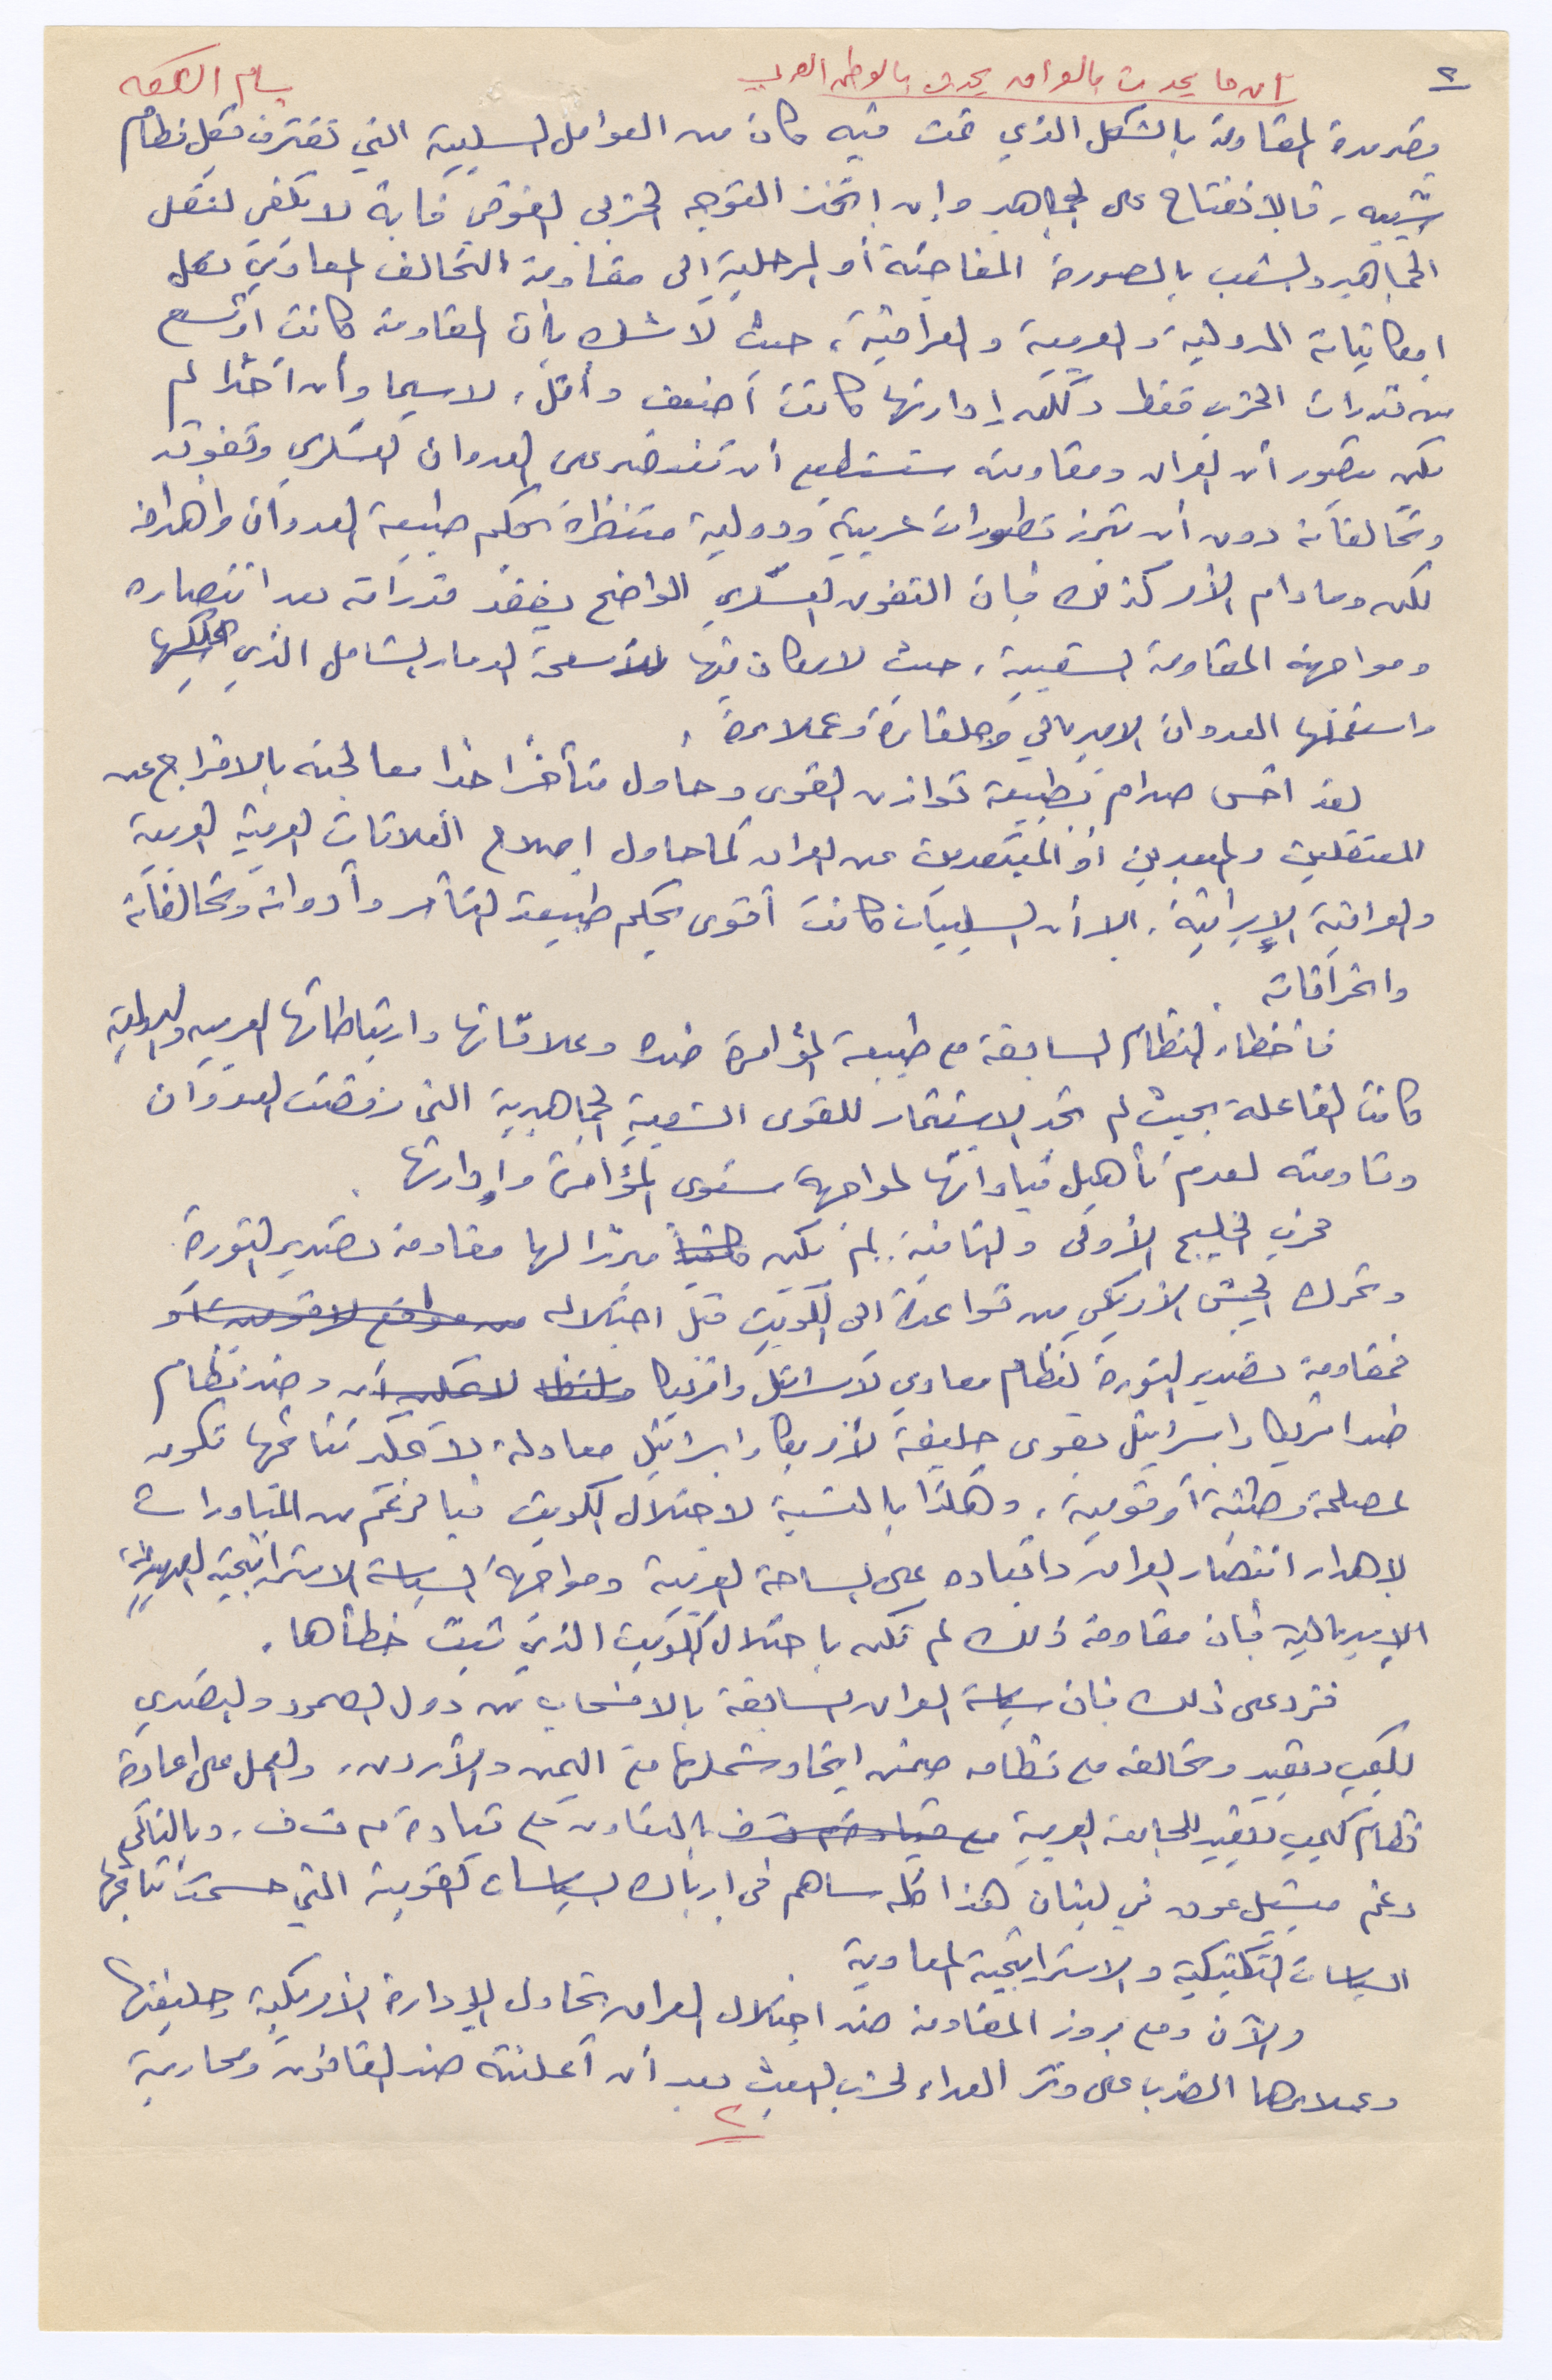 ٢
إن ما يحدث بالعراق يحدث بالوطن العربي
بسام
المقاومة بالشكل الذي تمت فيه كان من العوامل السلبية التي تعترف بكل نظام
شبيه، فالانفتاح على الجماهير وإن اتخذ التوجه الحزبي الفوقي فإنه لا يكفي لنقل
الجماهير والشعب بالصورة المفاجئة أو المرحلية إلى مقاومة التحالف المعادي بكل
إمكانياته الدولية والعربية والعراقية، حيث لا شك بأن المقاومة كانت أوسع
من قدرات الحزب فقط ولكن إدارتها كانت أضعف وأقل، لاسيما وأن أحدا لم
يكن يتصور أن العراق ومقاومته ستستطيع أن تنتصر على العدوان العسكري وتفوقه
وتحالفاته دون أن تبرز تطورات عربية ودولية منتظرة بحكم طبيعة العدوان وأهدافه
لكن وما دام الأمر كذلك فإن التفوق العسكري الواضح يفقد قدراته بعد انتصاره
ومواجهة المقاومة الشعبية، حيث لا مكان فيها لأسلحة الدمار الشامل الذي
واستعملها العدوان الامبريالي وحلفاؤه وعملاؤه.
لقد أحس صدام بطبيعة توازن القوى وحاول متأخرا جدا معالجته بالافراج عن
المعتقلين والمبعدين أو المبتعدين عن العراق كما حاول إصلاح العلاقات العربية العربية
والعراقية الإيرانية، إلا أن السلبيات كانت أقوى بحكم طبيعة التآمر وأدواته وتحالفاته
واختراقاته.
فأخطاء النظام السابقة مع طبيعة المؤامرة ضده وعلاقاتها وارتباطاتها العربية والدولية
كانت الفاعلة بحيث لم تجد الاستثمار للقوى الشعبية الجماهيرية التي رفضت العدوان
وقاومته لعدم تأهيل قياداتها لمواجهة مستوى المؤامرة وإدارتها.
فحرب الخليج الأولى والثانية. لم يكن مبررا لها مقاومة تصدير الثورة
وتحرك الجيش الأمريكي من قواعده الى الكويت قبل احتلاله
فمقاومة تصدير الثورة لنظام معادي لاسرائيل وامريكا وضد نظام
ضد امريكا واسرائيل بقوى حليفة لأمريكا واسرائيل معادلة لا يمكن نتائجها تكون
لمصلحة وطنية أو قومية، وهكذا بالنسبة لاحتلال الكويت فبالرغم من المبادرات
لاهدار انتصار العراق وابعاده على الساحة العربية ومواجهة السياسة الاستراتيجية الصهيونية
الامبريالية فإن مقاومة ذلك لم تكن باحتلال الكويت الذي ثبت خطأها.
فزد على ذلك فإن سياسة العراق السابقة بالانسحاب من دول الصمود والتصدي
لكمب ديفيد وتحالفه مع نظامه ضمن اتحاد شملها مع اليمن والأردن، والعمل على اعادة
نظام كمب ديفيد للجامعة العربية بالتعاون مع قيادة م ت ف. وبالتالي
دعم ميشيل عون في لبنان هذا كله ساهم في ارباك السياسات القومية التي حسمت نتائجها
السياسات التكتيكية والاستراتيجية المعادية.
والآن ومع بروز المقاومة ضد احتلال العراق تحاول الإدارة الأمريكية وحليفتها
وعملاءهما الضرب على وتر العداء لحزب البعث بعد أن أعلنته ضد القانون ومحاربة
٢